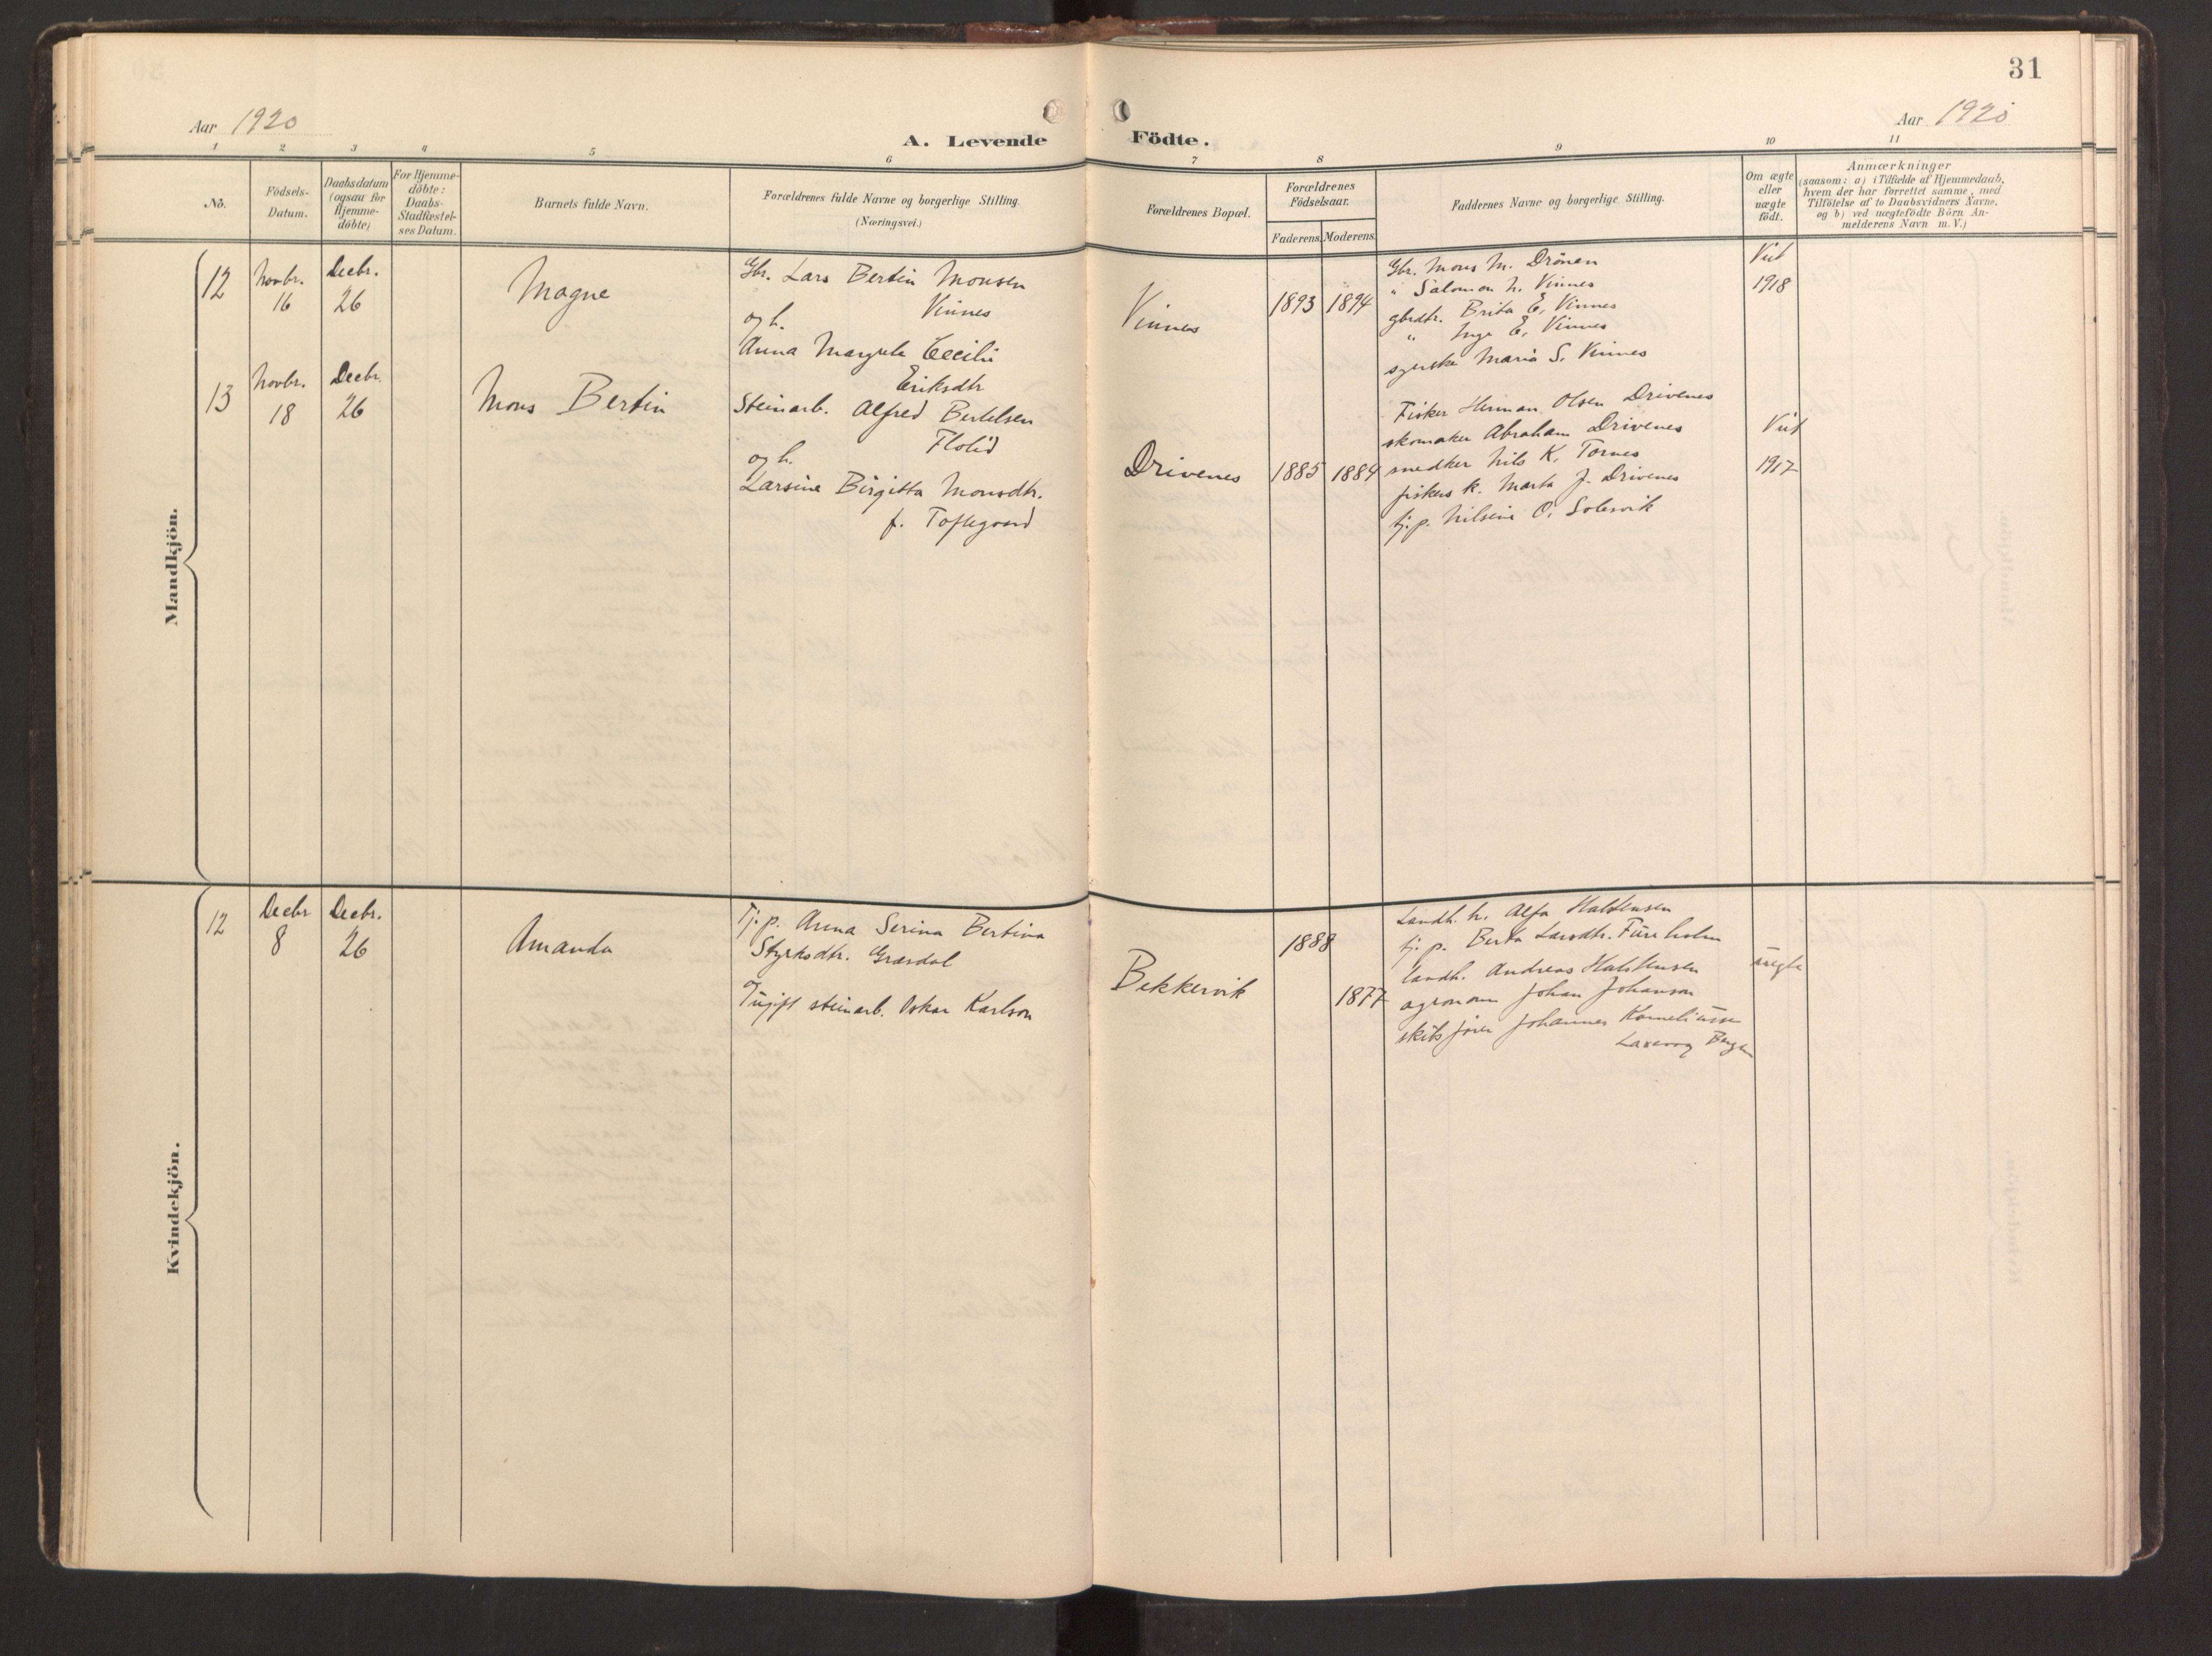 31
Aar 1920
Aar 1920
A. Levende Födte.
1 2 3 4 5 6 7 8 9 10 11
No.
Födsels-
Datum.
Daabsdatum
(ogsaa for
Hjemme-
döbte)
For Hjemme-
döbte:
Daabs-
Stadfæstel-
ses Datum.
Barnets fulde Navn.
Forældrenes fulde Navne og borgerlige Stilling.
(Næringsvei.)
Forældrenes Bopæl.
Forældrenes
Födselsaar.
Faderens. Moderens.
Faddernes Navne og borgerlige Stilling.
Om ægte
eller
uægte
födt.
Anmærkninger
(saasom: a) i Tilfælde af Hjemmedaab,
hvem der har forrettet samme, med
Tilföielse af to Daabsvidners Navne,
og b) ved uægtefödte Börn An-
melderens Navn m. V.)
Mandkjön.
12
Novbr.
16
Decbr.
26
Magne
Gbr. Lars Bertin Monsen
Vinnes
og h.
Anna Margreta Cecilie
Eriksdtr
Vinnes
1893 1894
Gbr. Mons M. Drönen
" Salomon N. Vinnes
gbrdtr. Brita E. Vinnes
" Inga E. Vinnes
syerske Maria S. Vinnes
Viet
1918
13
Novbr.
18
Decbr.
26
Mons Bertin
Steinarb. Alfred Bertelsen
Flolid
og h.
Larsine Birgitta Monsdtr.
f. Toftegaard
Drivenes
1885 1884
Fisker Herman Olsen Drivenes
skomaker Abraham Drivenes
snedker Nils K. Tornes
fiskers k. Marta J. Drivenes
tj. p. Nilsine O. Solesvik
Viet
1917
Kvindekjön.
12
Decbr
8
Decbr.
26
Amanda
Tj. p. Anna Serina Bertina
Styrksdtr. Græsdal
og
Ugift steinarb. Oskar Karlson
Bekkervik
1888
1877
Landh. h. Alfa Halstensen
tj. p. Berta Larsdtr. Füreholm
landh. Andreas Halstensen
agronom Johan Johanson
skibsfører Johannes Korneliussen
Laxevaag Bergen
uegte